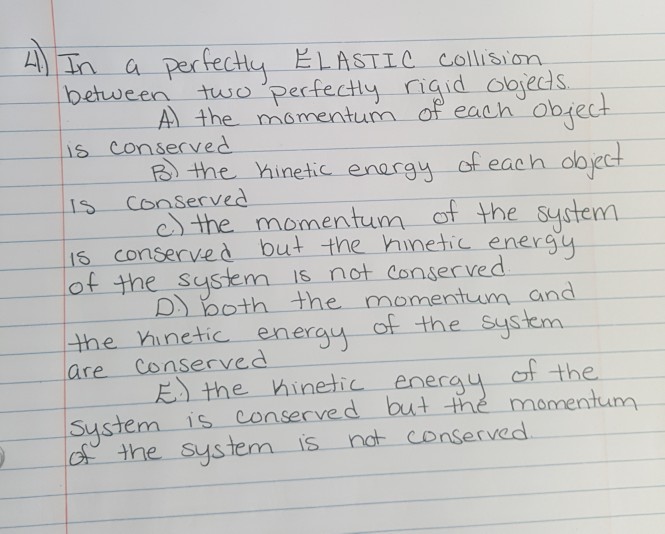 4.) In a perfectly ELASTIC collision
between two perfectly rigid objects.
A) the momentum of each object
is conserved
B) the kinetic energy of each object
is conserved
C.) the momentum of the system
is conserved but the kinetic energy
of the system is not conserved.
D.) both the momentum and
the kinetic energy of the system
are conserved
E.) the kinetic energy of the
system is conserved but the momentum
of the system is not conserved.